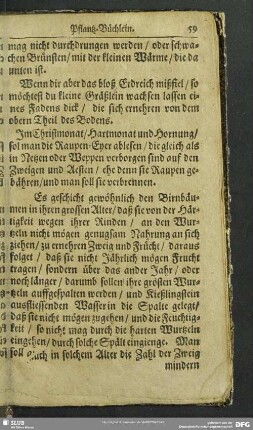 Pflantz-Büchlein. 59
mag nicht durchdrungen werden / oder schwa-
chen Brünsten / mit der kleinen Wärme / die da
unten ist.
Wenn dir aber das bloß Eidreich mißfiel / so
möchtest du kleine Gräßlein wachsen lassen ei-
nes Fadens dick / die sich ernehren von dem
obern Theil des Bodens.
Im Christmonat / Hartmonat und Hornung /
sol man die Raupen-Eyer ablesen / die gleich als
in Netzen oder Weppen verborgen sind auf den
Zweigen und Aesten / ehe denn sie Raupen ge-
bähren / und man soll sie verbrennen.
Es geschicht gewöhnlich den Birnbäu-
men in ihren grossen Alter / daß sie von der Här-
tigkeit wegen ihrer Rinden / an den Wur-
tzeln nicht mögen genugsam Nahrung an sich
ziehen / zu ernehren Zweig und Frücht / daraus
folget / daß sie nicht Jährlich mögen Frucht
tragen / sondern über das ander Jahr / oder
noch länger / darumb sollen ihre grösten Wur-
tzeln auffgespalten werden / und Kießlingstein
ausfliessenden Wasser in die Spalte gelegt /
daß sie nicht mögen zugehen / und die Feuchtig-
keit / so nicht mag durch die harten Wurtzeln
eingehen / durch solche Spält eingienge. Man
soll auch in solchem Alter die Zahl der Zweig
mindern